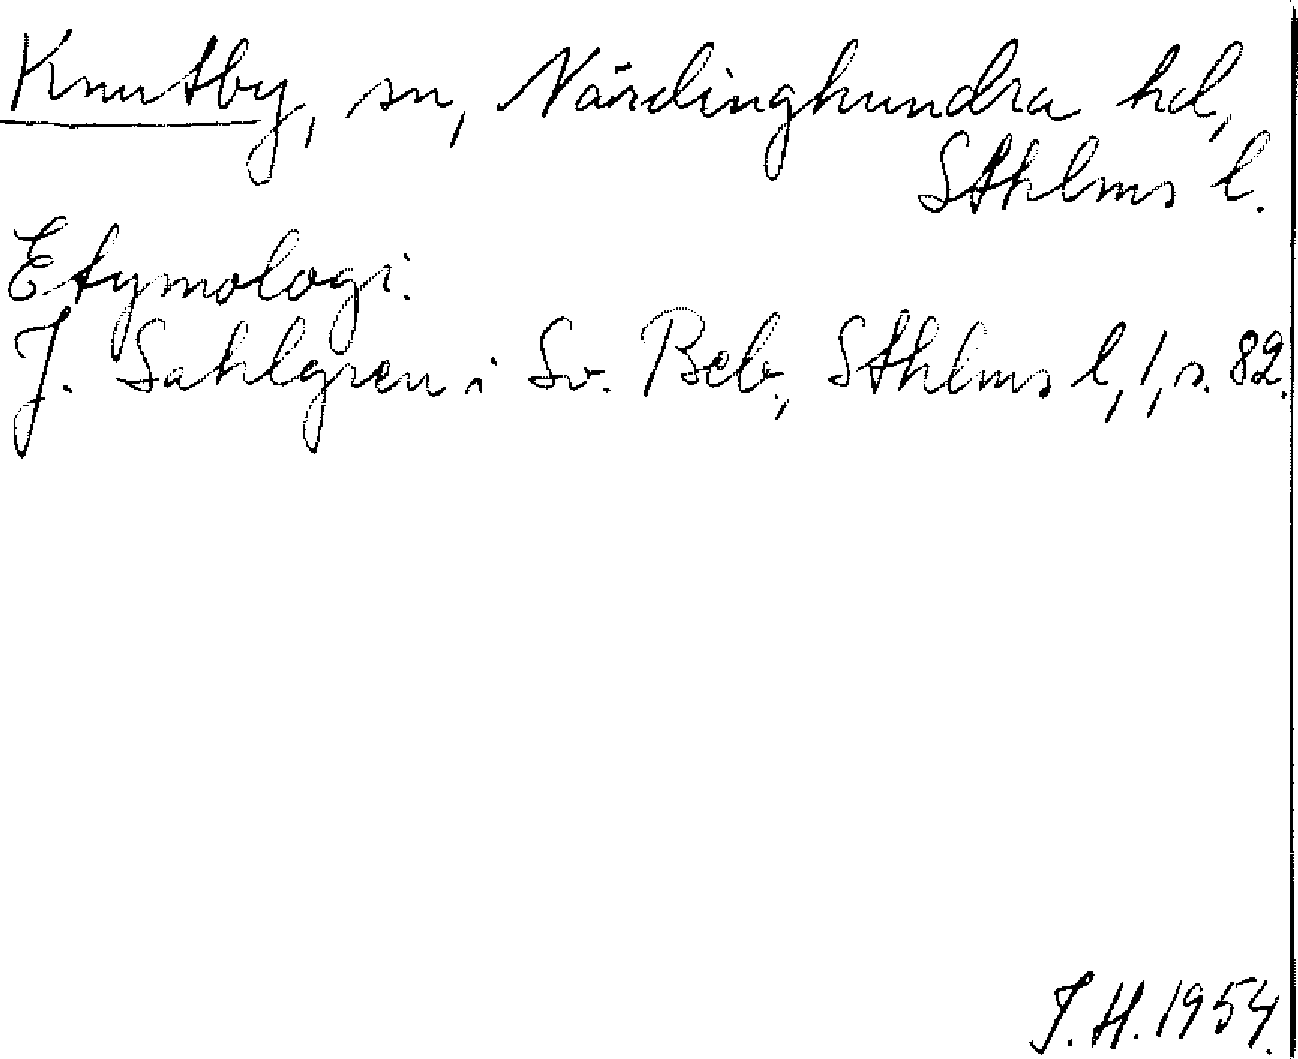 Knutby, sn, Närdinghundra hd,
Sthlms l.
Etymologi:
J. Sahlgren i Sv. Beb., Sthlms l, 1, s. 82.
J. H. 1954.